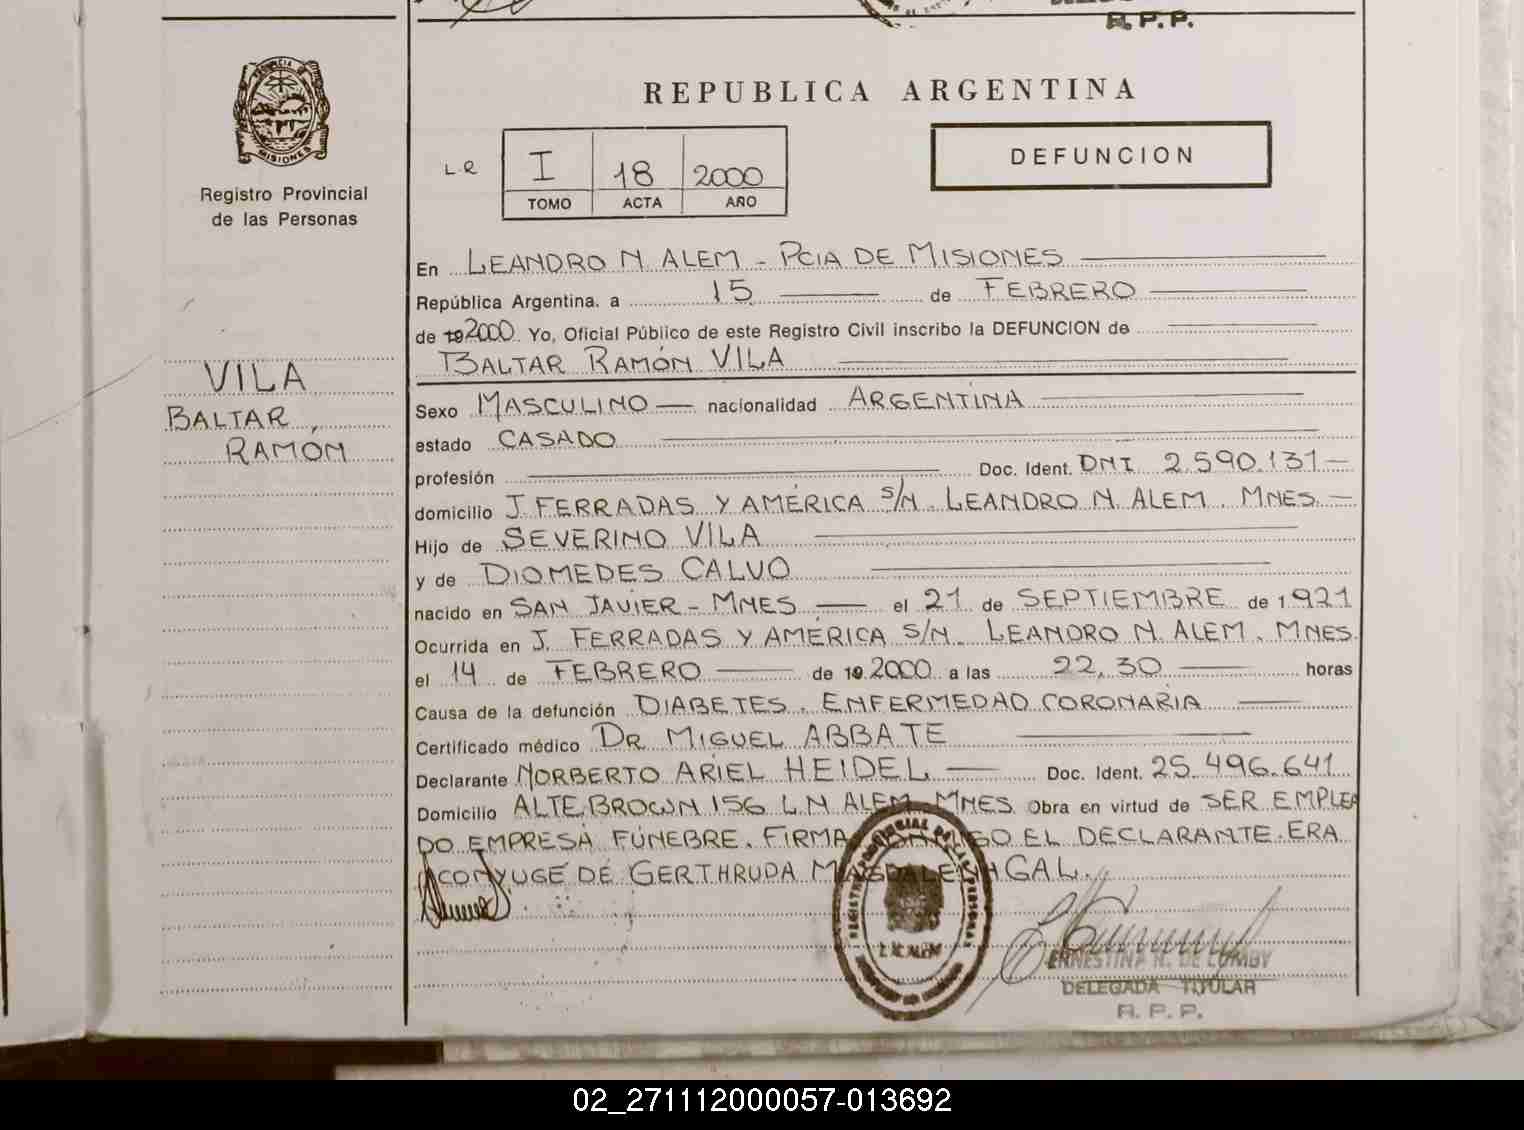 R. P. P.
PROVINCIA D
MISIONES
Registro Provincial
de las Personas
REPUBLICA ARGENTINA
DEFUNCION
L.R I 18 2000
TOMO ACTA AÑO
VILA
BALTAR,
RAMÓN
En LEANDRO N ALEM - PCIA DE MISIONES
República Argentina. a 15 de FEBRERO
de 192000 Yo, Oficial Público de este Registro Civil inscribo la DEFUNCION de
BALTAR RAMÓN VILA
Sexo MASCULINO nacionalidad ARGENTINA
estado CASADO
profesión Doc. Ident. DNI 2.590.131
domicilio J. FERRADAS Y AMÉRICA S/N. LEANDRO N. ALEM. MNES.
Hijo de SEVERINO VILA
y de DIOMEDES CALVO
nacido en SAN JAVIER - MNES el 21 de SEPTIEMBRE de 1921
Ocurrida en J. FERRADAS Y AMÉRICA S/N. LEANDRO N. ALEM. MNES.
el 14 de FEBRERO de 192000 a las 22,30 horas
Causa de la defunción DIABETES. ENFERMEDAD CORONARIA
Certificado médico DR MIGUEL ABBATE
Declarante NORBERTO ARIEL HEIDEL Doc. Ident. 25.496.641
Domicilio ALTE. BROWN 156 L.N ALEM. MNES. Obra en virtud de SER EMPLEA
DO EMPRESA FÚNEBRE. FIRMA EL DECLARANTE. ERA
CONYUGE DE GERTHRUDA MAGDALENA GAL.
REGISTRO PROVINCIAL DE LAS PERSONAS
L.N. ALEM
ERNESTINA N. DE
DELEGADA TITULAR
R. P. P.
02_271112000057-013692